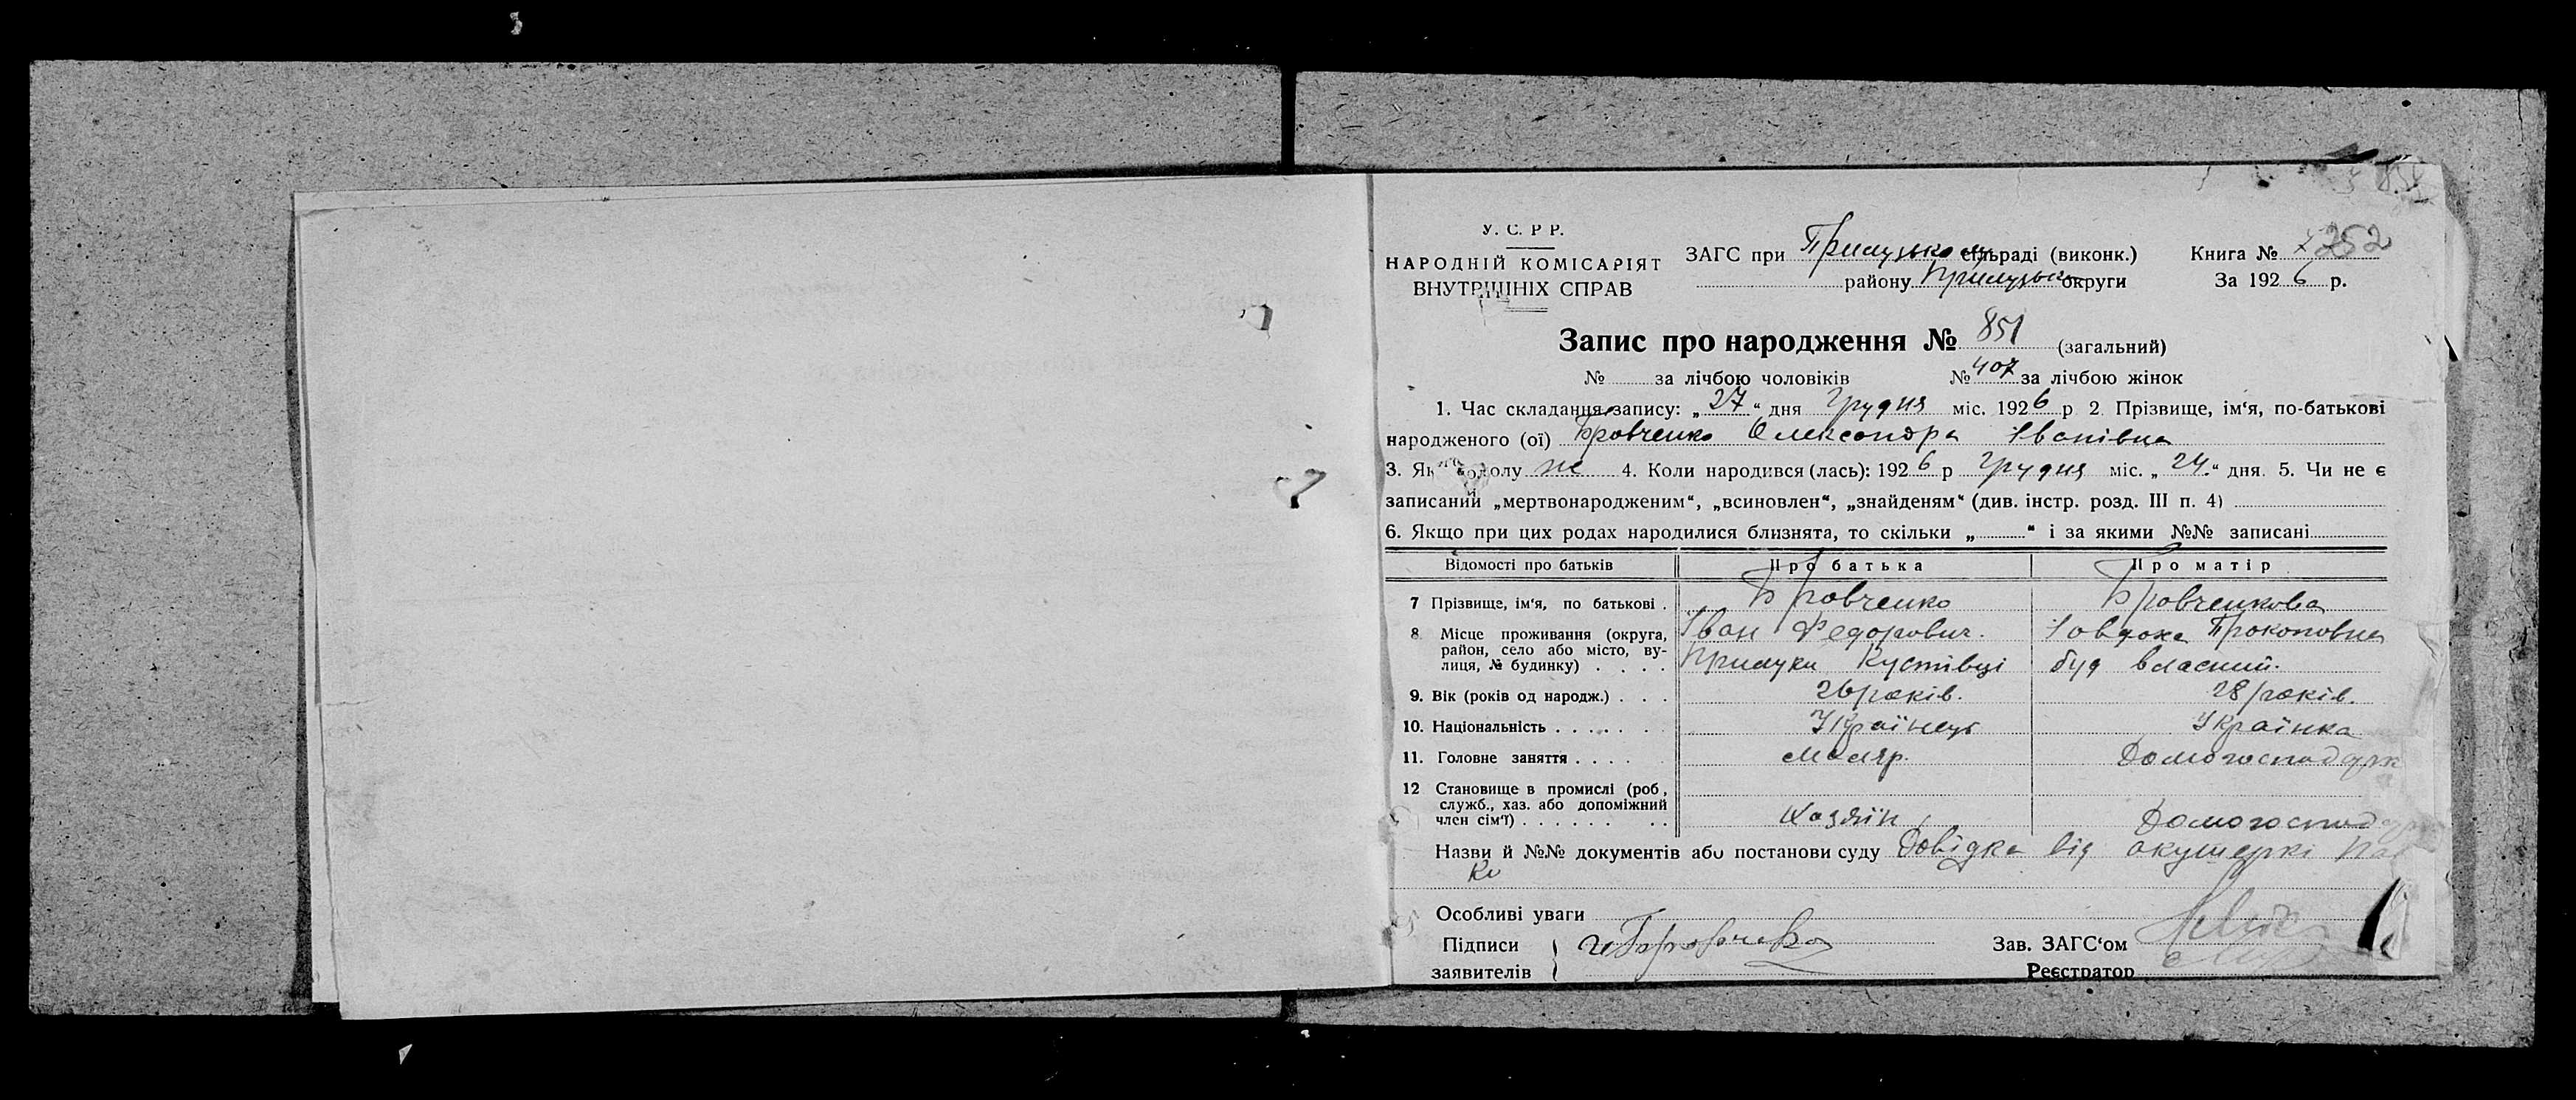 У. С. Р Р.
НАРОДНІЙ КОМІСАРІЯТ
ВНУТРІШНІХ СПРАВ
ЗАГС при Прилуцьком сільраді (виконк.)
району Прилуцької округи
Книга № 7 252
За 1926 р.
Запис про народження № 851 (загальний)
№ за лічбою чоловіків № 407 за лічбою жінок
1. Час складання запису: „27“ дня Грудня міс. 1926 р 2 Прізвище, ім‘я, по-батькові
народженого (ої) Бровченко Олександра Іванівна
3. Якого полу ж 4. Коли народився (лась): 1926 р Грудня міс. „24“ дня. 5. Чи не є
записаний „мертвонародженим“, „всиновлен“, „знайденям“ (див. інстр. розд. III п. 4)
6. Якщо при цих родах народилися близнята, то скільки „ “ і за якими №№ записані
Відомості про батьків Про батька Про матір
7 Прізвище, ім‘я, по батькові . Бровченко Бровченкова
Іван Федорович. Іовдоха Прокоповна
8 Місце проживання (округа,
район, село або місто, ву-
лиця, № будинку) . . . . Прилуки Кустівці буд власний.
9. Вік (років од народж.) . . . 26 років. 28 років.
10. Національність . . . . . . Українець Українка
11. Головне заняття . . . . Маляр. Домогосподарк
12 Становище в промислі (роб,
служб., хаз. або допоміжний
член сім‘ї) . . . . . . . . Хазяїн Домогоспод
Назви й №№ документів або постанови суду Довідка від акушеркі
ко
Особливі уваги
Підписи
заявителів
Зав. ЗАГС‘ом
Реєстратор